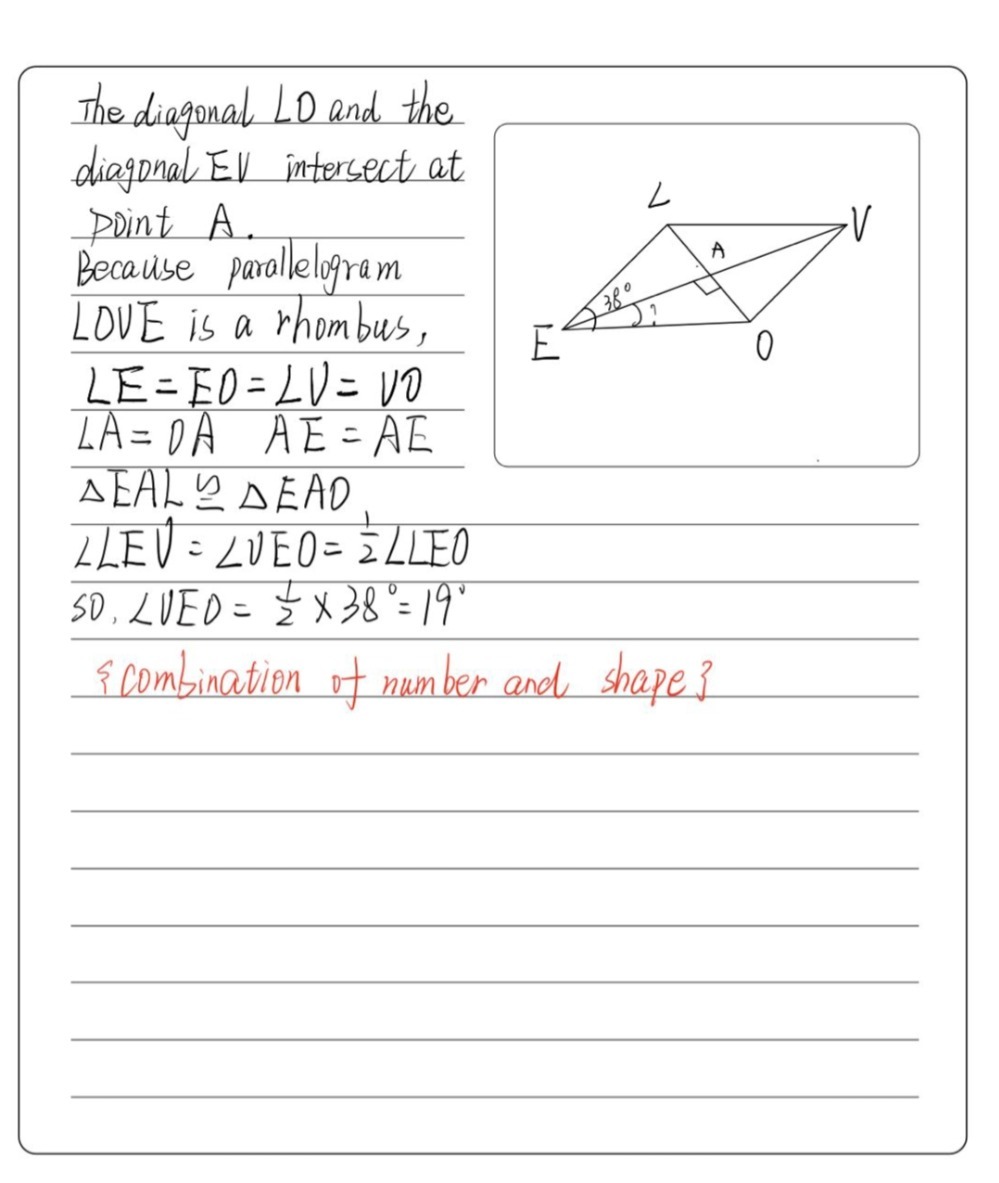 The diagonal LO and the
diagonal EV intersect at
point A.
Because parallelogram
LOVE is a rhombus,
LE=EO=LV=VO
LA=OA AE=AE
△EAL≌△EAO
∠LEV=∠VEO=½∠LEO
SO,∠VEO=½×38°=19°
{combination of number and shape}
L
V
A
38°
?
E
O